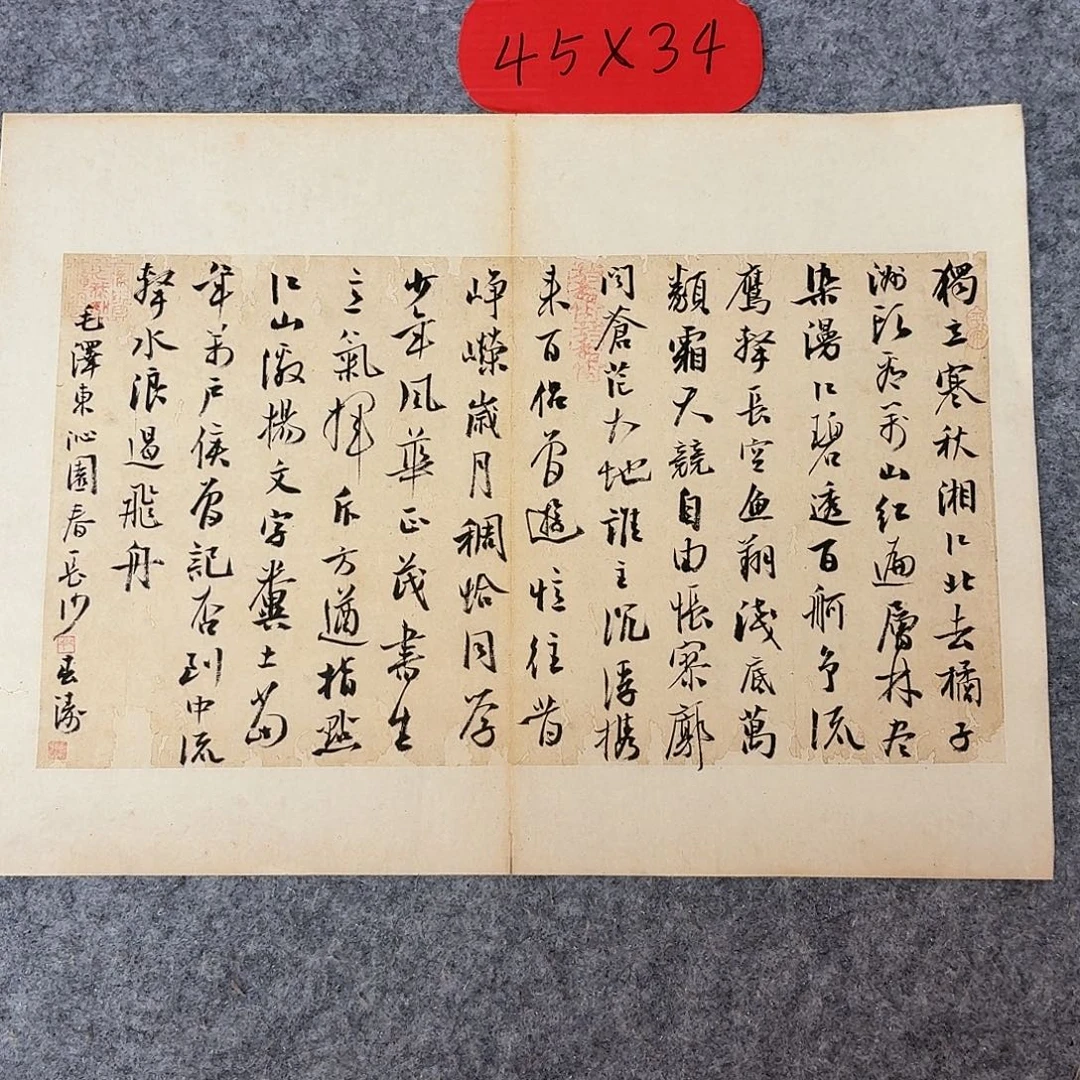 45X34
獨立寒秋湘江北去橘子
洲头看万山红遍層林尽
染漫江碧透百舸争流
鷹擊長空魚翔淺底萬
類霜天競自由悵寥廓
问蒼茫大地誰主沉浮攜
来百侣曾遊憶往昔
崢嶸歲月稠恰同学
少年風華正茂書生
意氣揮斥方遒指點
江山激揚文字糞土當
年万户侯曾記否到中流
擊水浪遏飛舟
毛澤東沁園春長沙